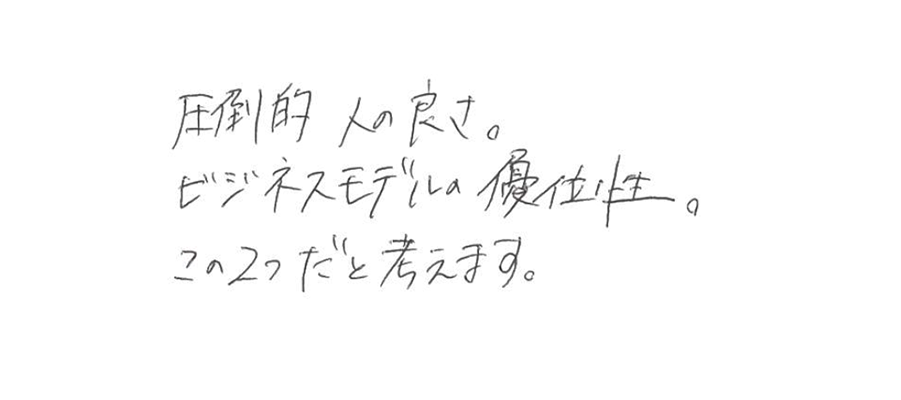 圧倒的 人の良さ。
ビジネスモデルの優位性。
この2つだと考えます。